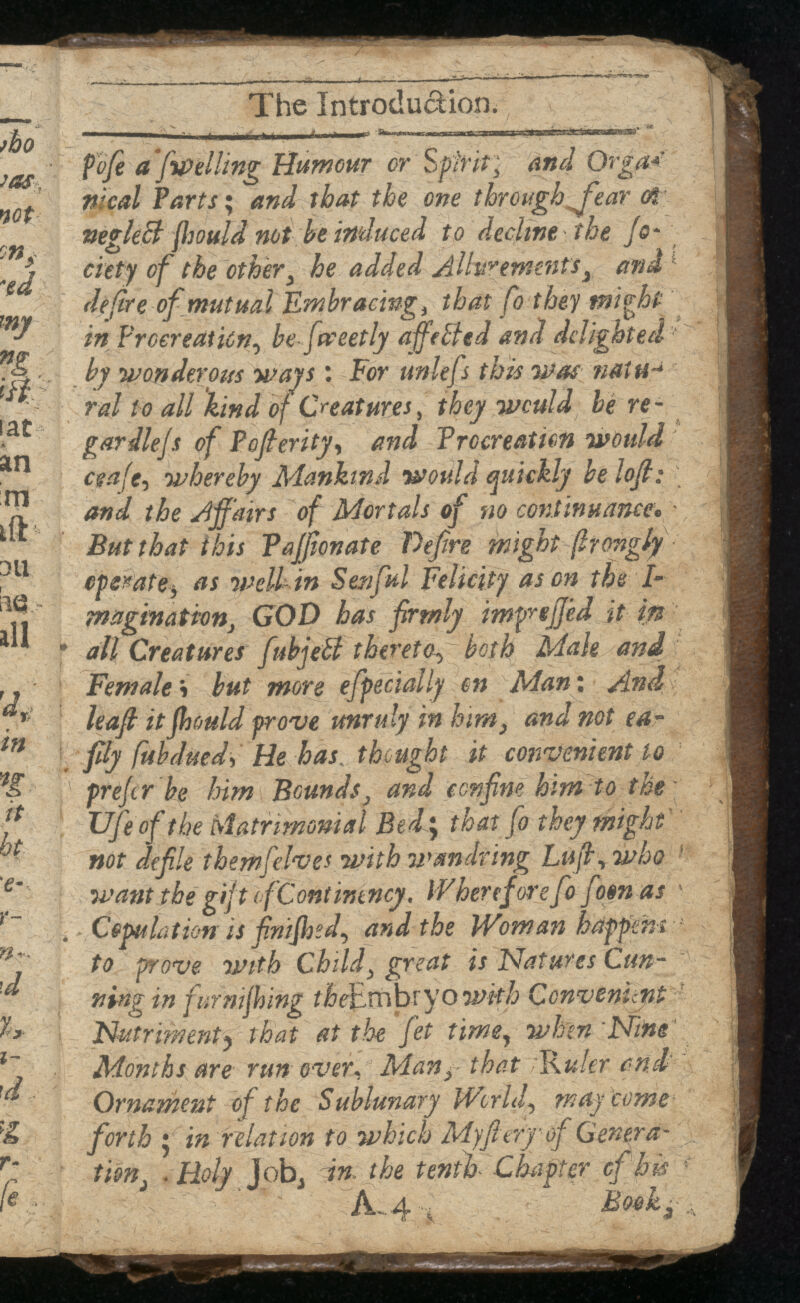 The Introduction.
pose a ſwelling Humour or Spirit; and Orga-
nical Parts; and that the one through fear or
neglect ſhould not be induced to decline the ſo-
ciety of the other, he added Allurements, and
deſire of mutual Embracing, that ſo they might
in Procreation, be ſweetly affected and delighted
by wonderous ways: For unleſs this was natu-
ral to all kind of Creatures, they would be re-
gardleſs of Poſterity, and Procreation would
ceaſe, whereby Mankind would quickly be loſt:
and the Affairs of Mortals of no continuance.
But that this Paſſionate Deſire might ſtrongly
operate, as well in Senſul Felicity as on the I-
magination, GOD has firmly impreſſed it in
all Creatures ſubject thereto, both Male and
Female; but more eſpecially on Man: And
leaſt it ſhould prove unruly in him, and not ea-
ſily ſubdued, He has thought it convenient to
preſcribe him Bounds, and confine him to the
Uſe of the Matrimonial Bed; that ſo they might
not defile themſelves with wandring Luſt, who
want the gift of Continency. Wherefore ſo ſoon as
Copulation is finiſhed, and the Woman happens
to prove with Child, great is Natures Cun-
ning in furniſhing the Embryo with Convenient
Nutriment, that at the ſet time, when Nine
Months are run over, Man, that Ruler and
Ornament of the Sublunary World, may come
forth; in relation to which Myſtery of Genera-
tion, Holy Job, in the tenth Chapter of his
A 4 Book,